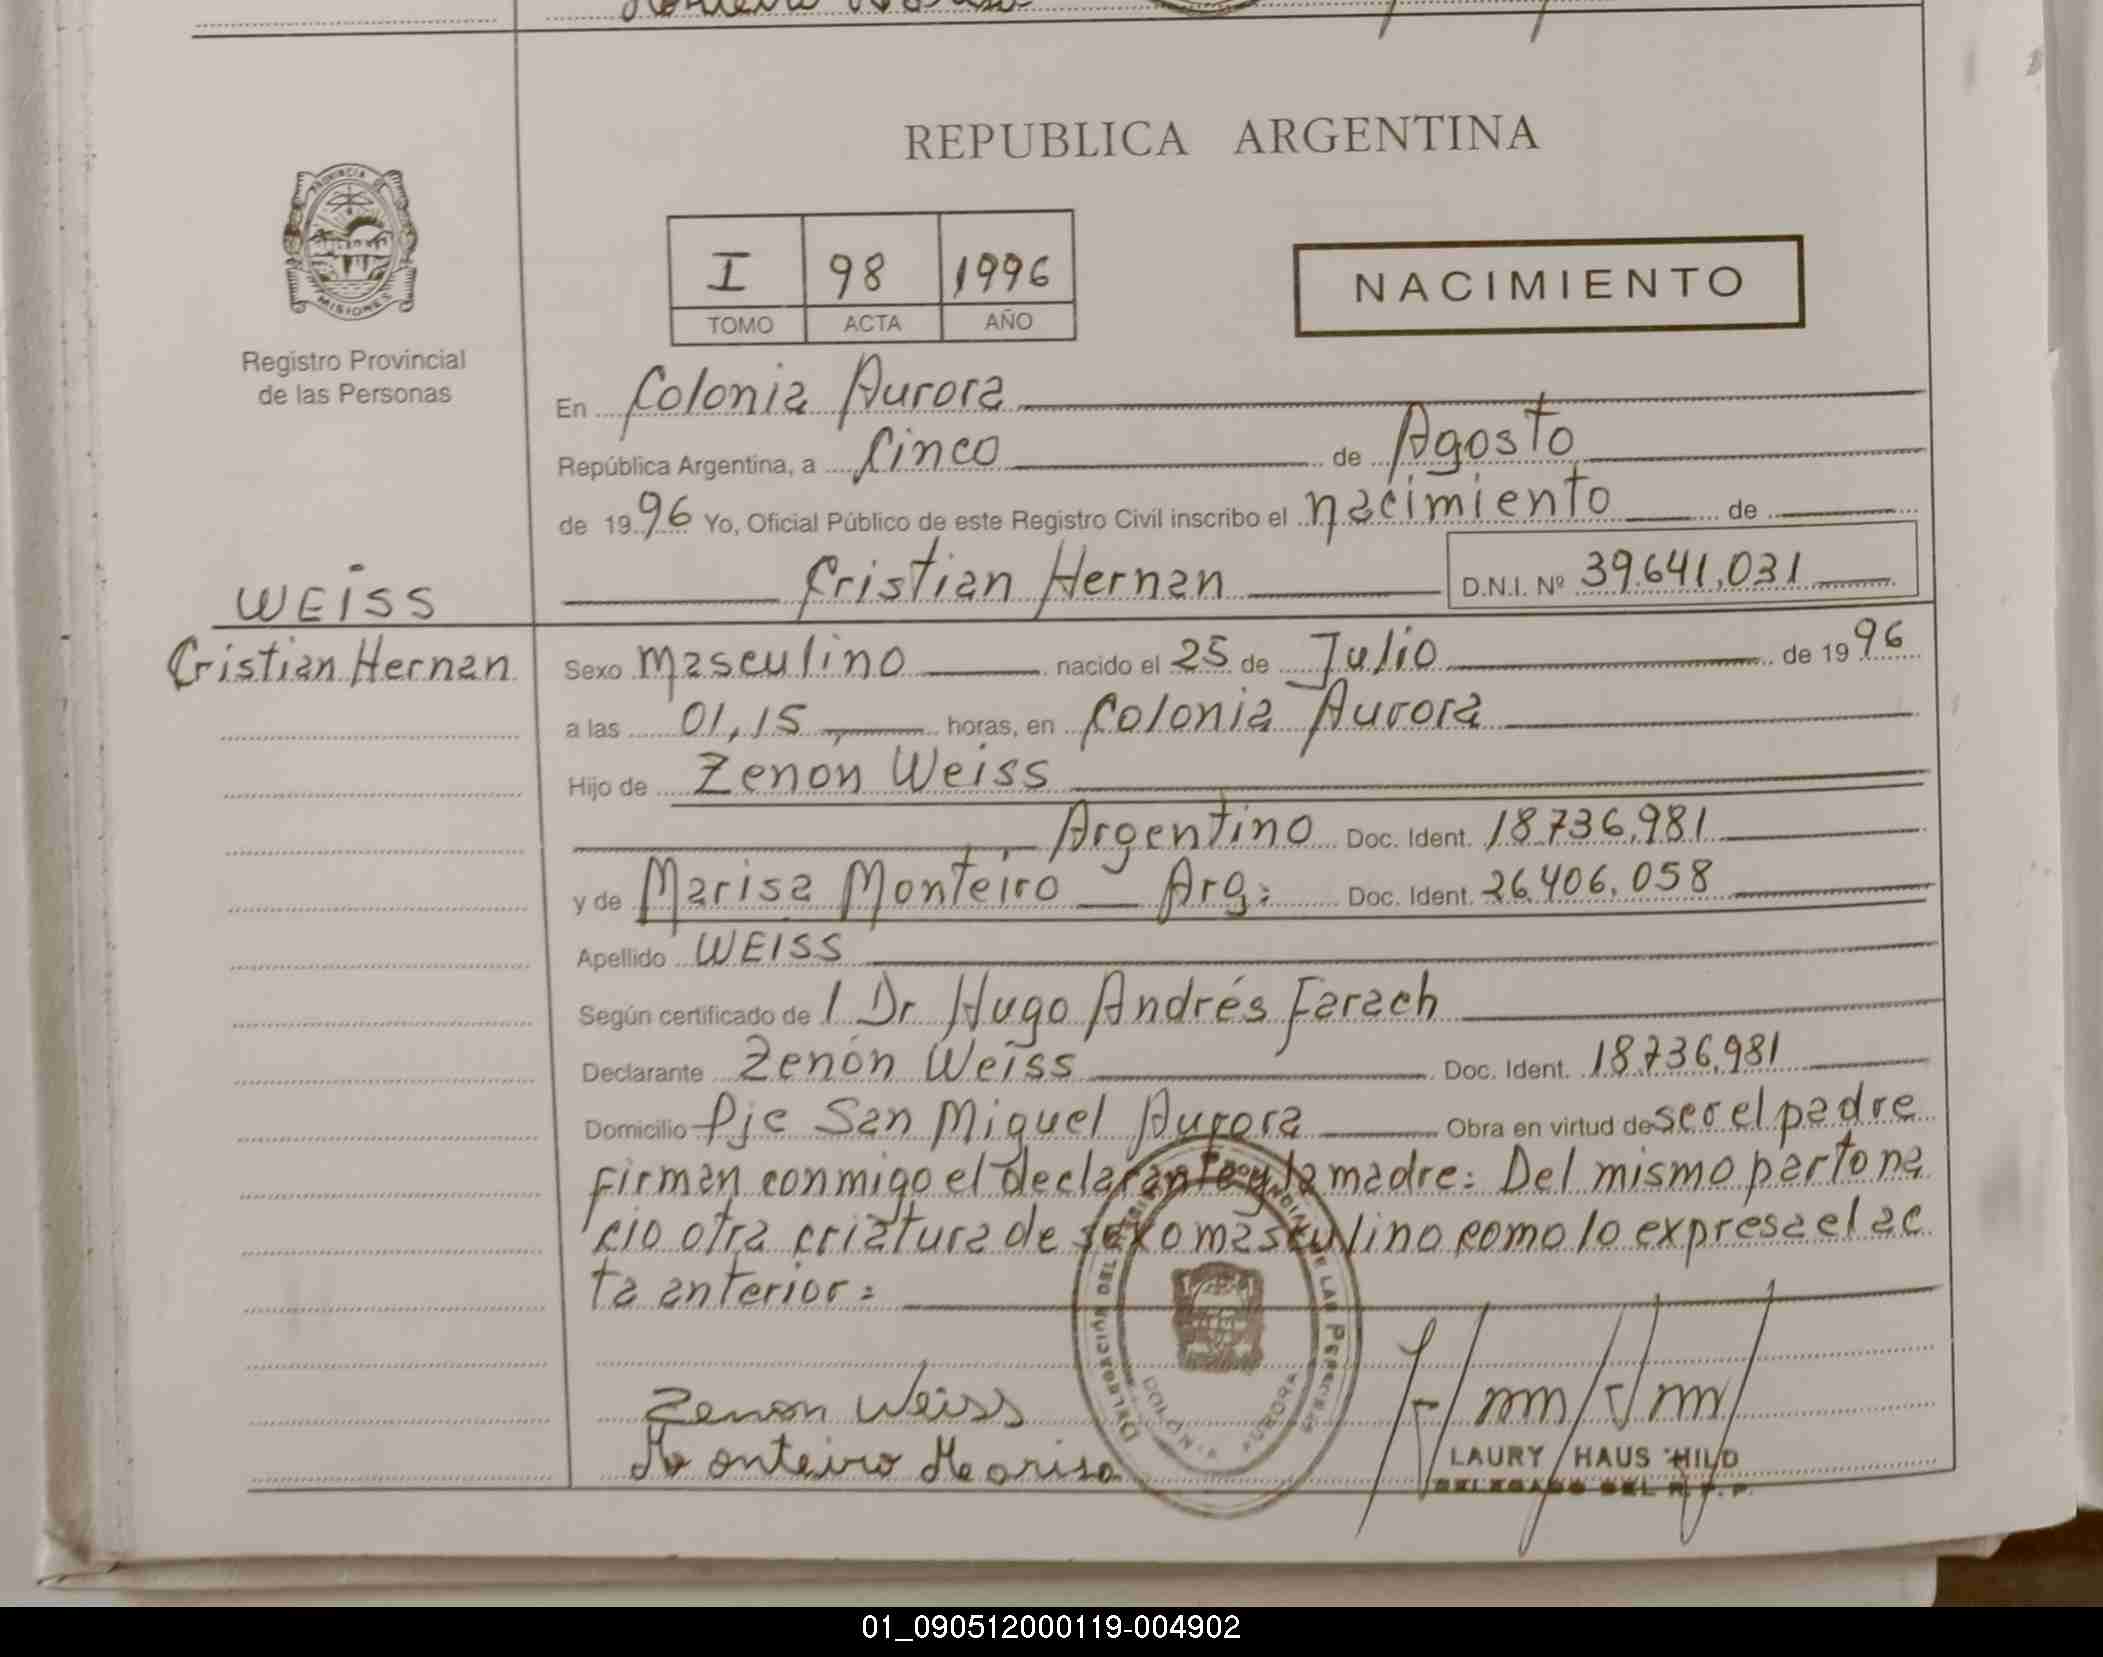 REPUBLICA ARGENTINA
PROVINCIA DE
MISIONES
Registro Provincial
de las Personas
I 98 1996
TOMO ACTA AÑO
NACIMIENTO
En Colonia Aurora
República Argentina, a Cinco de Agosto
de 1996 Yo, Oficial Público de este Registro Civil inscribo el nacimiento de
Cristian Hernan D.N.I. Nº 39.641,031
WEISS
Cristian Hernan
Sexo masculino nacido el 25 de Julio de 1996
a las 01,15 horas, en Colonia Aurora
Hijo de Zenon Weiss
Argentino Doc. Ident. 18.736,981
y de Marisa Monteiro Arg: Doc. Ident. 26.406.058
Apellido WEISS
Según certificado de l Dr Hugo Andrés Farach
Declarante Zenón Weiss Doc. Ident. 18.736,981
Domicilio Pje San Miguel Aurora Obra en virtud de ser el padre
firman conmigo el declarante y la madre: Del mismo parto na
cio otra criatura de sexo masculino como lo expresa el ac
ta anterior:
DELEGACION DEL PROVINCIAL DE LAS PERSONAS
COLONIA AURORA
Zenon Weiss
Monteiro Marisa
LAURY HAUS HILD
DELEGADO DEL R. P. P.
01_090512000119-004902